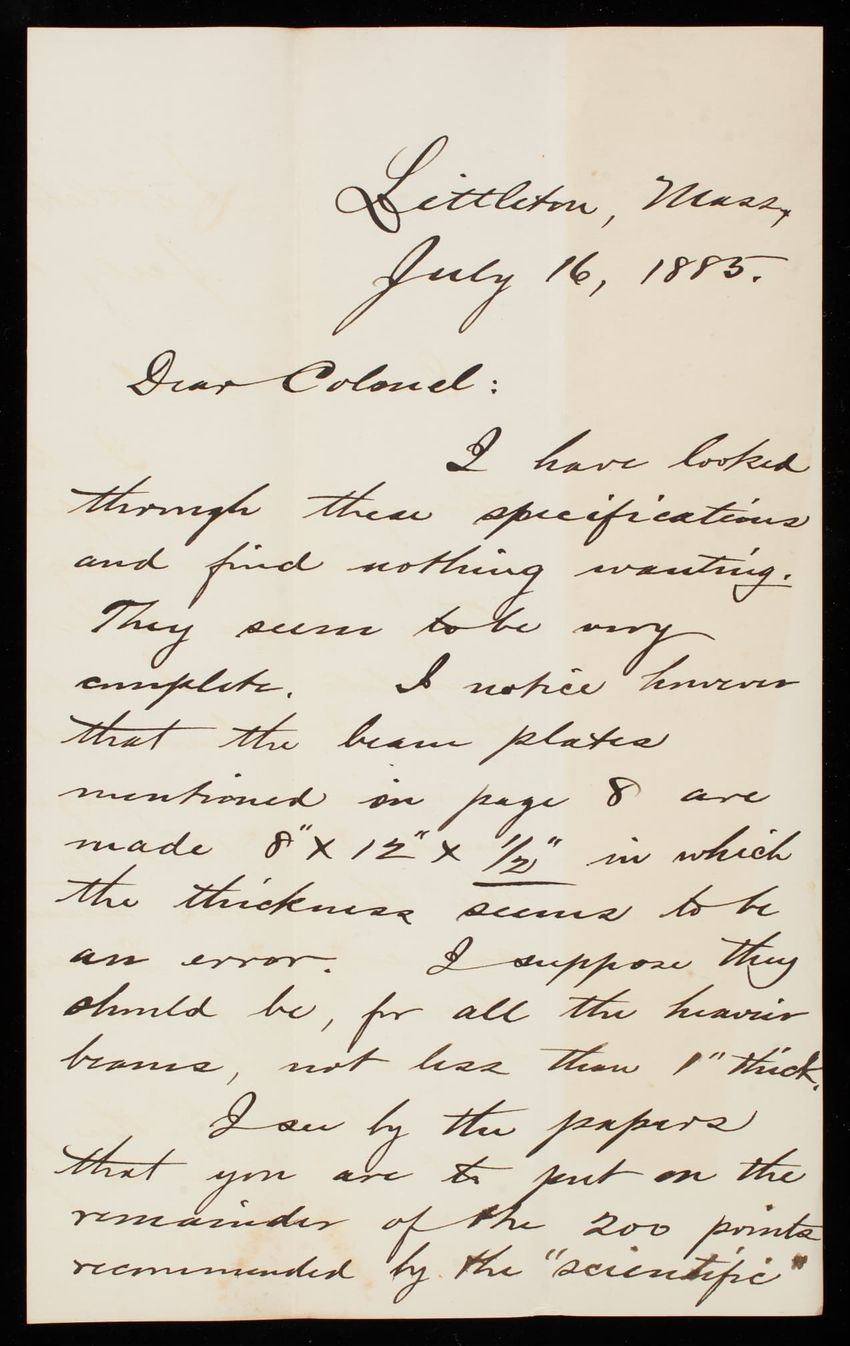 Littleton, Mass,
July 16, 1885.
Dear Colonel:
I have looked
through these specifications
and find nothing wanting.
They seem to be very
complete. I notice however
that the beam plates
mentioned on page 8 are
made 8" X 12" X 1/2" in which
the thickness seems to be
an error. I suppose they
should be, for all the heavier
beams, not less than 1" thick.
I see by the papers
that you are to put on the
remainder of the 200 points
recommended by the "scientific"